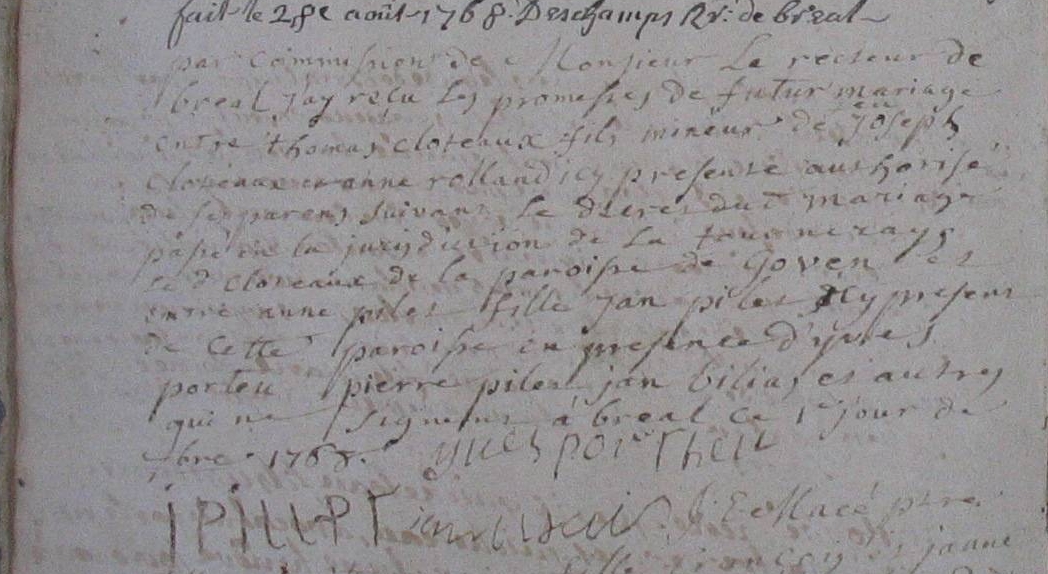 fait le 28e août 1768. Deschamps Rr. de breal
par Commission de Monsieur Le recteur de
breal j'ay recu les promesses de futur mariage
entre thomas cloteaux fils mineur de feu joseph
cloteaux et anne rolland icy presente authorisé
de ses parens suivant le decret dudt mariage
passé en la jurisdiction de la
le d cloteaux de la paroisse de Goven et
entre anne pilet fille jan pilet icy present
de cette paroisse en presence d'yves
porteu pierre pilet jan bilias et autres
qui ne signent à breal ce 1e jour de
7bre 1768. yues portheu
j PILLET jan ptre
et janne